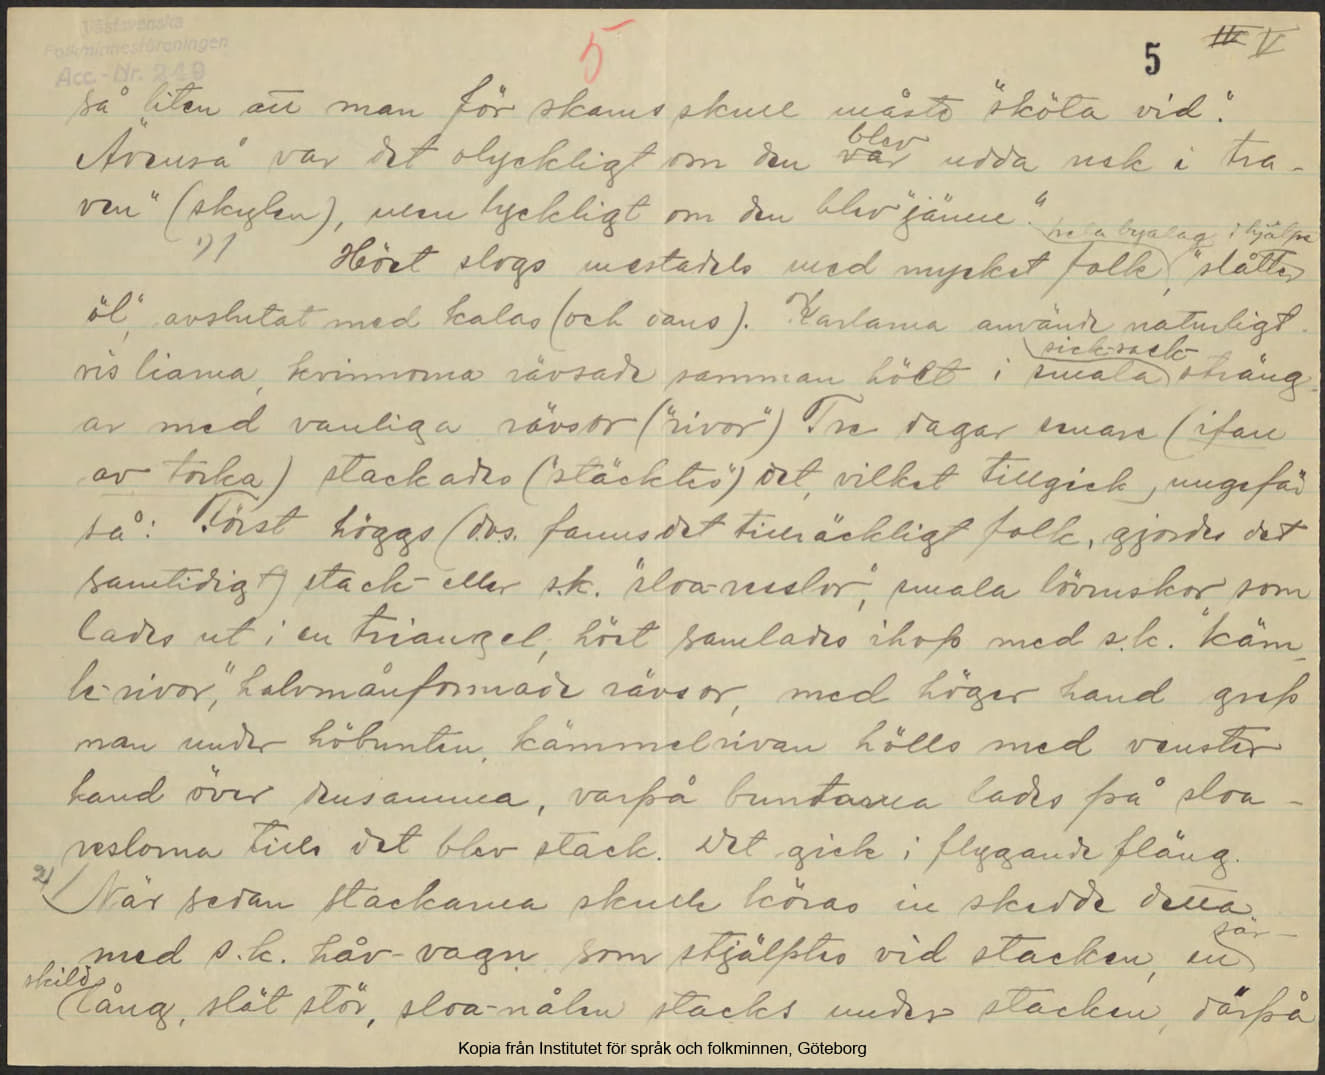 Västsvenska
Folkminnesföreningen
Acc.-Nr. 249
5
5
IV V
så liten att man för skams skull måste "sköta vid".
Ävenså var det olyckligt om den var blev udda nek i "tra-
ven" (skylen), men lyckligt om den blev "jämne".
1)
Höet slogs mestadels med mycket folk, hela byalag i hjälpe "slåtter
öl", avslutat med kalas (och dans). Karlarna använde naturligt-
vis liarna, kvinnorna rävsade samman höet i smala sick-sack- sträng-
ar med vanliga rävsor ("rivor") Tre dagar senare (ifall
av torka) stackades ("stäcktes") det, vilket tillgick ungefär
så: Först höggs (d.v.s. fanns det tillräckligt folk, gjordes det
samtidigt) stack- eller s.k. "sloa-resslor", smala lövruskor som
lades ut i en triangel, höet samlades ihop med s.k. "käm-
le-rivor", halvmånformade rävsor, med höger hand grep
man under höbunten, kämmelrivan hölls med venster
hand över densamma, varpå buntarna lades på sloa-
reslorna tills det blev stack. Det gick i flygande fläng.
2) När sedan stackarna skulle köras in skedde detta
med s.k. håv-vagn som stjälptes vid stacken, en sär-
skild lång, slät stör, sloa-nålen stacks under stacken, därpå
Kopia från Institutet för språk och folkminnen, Göteborg